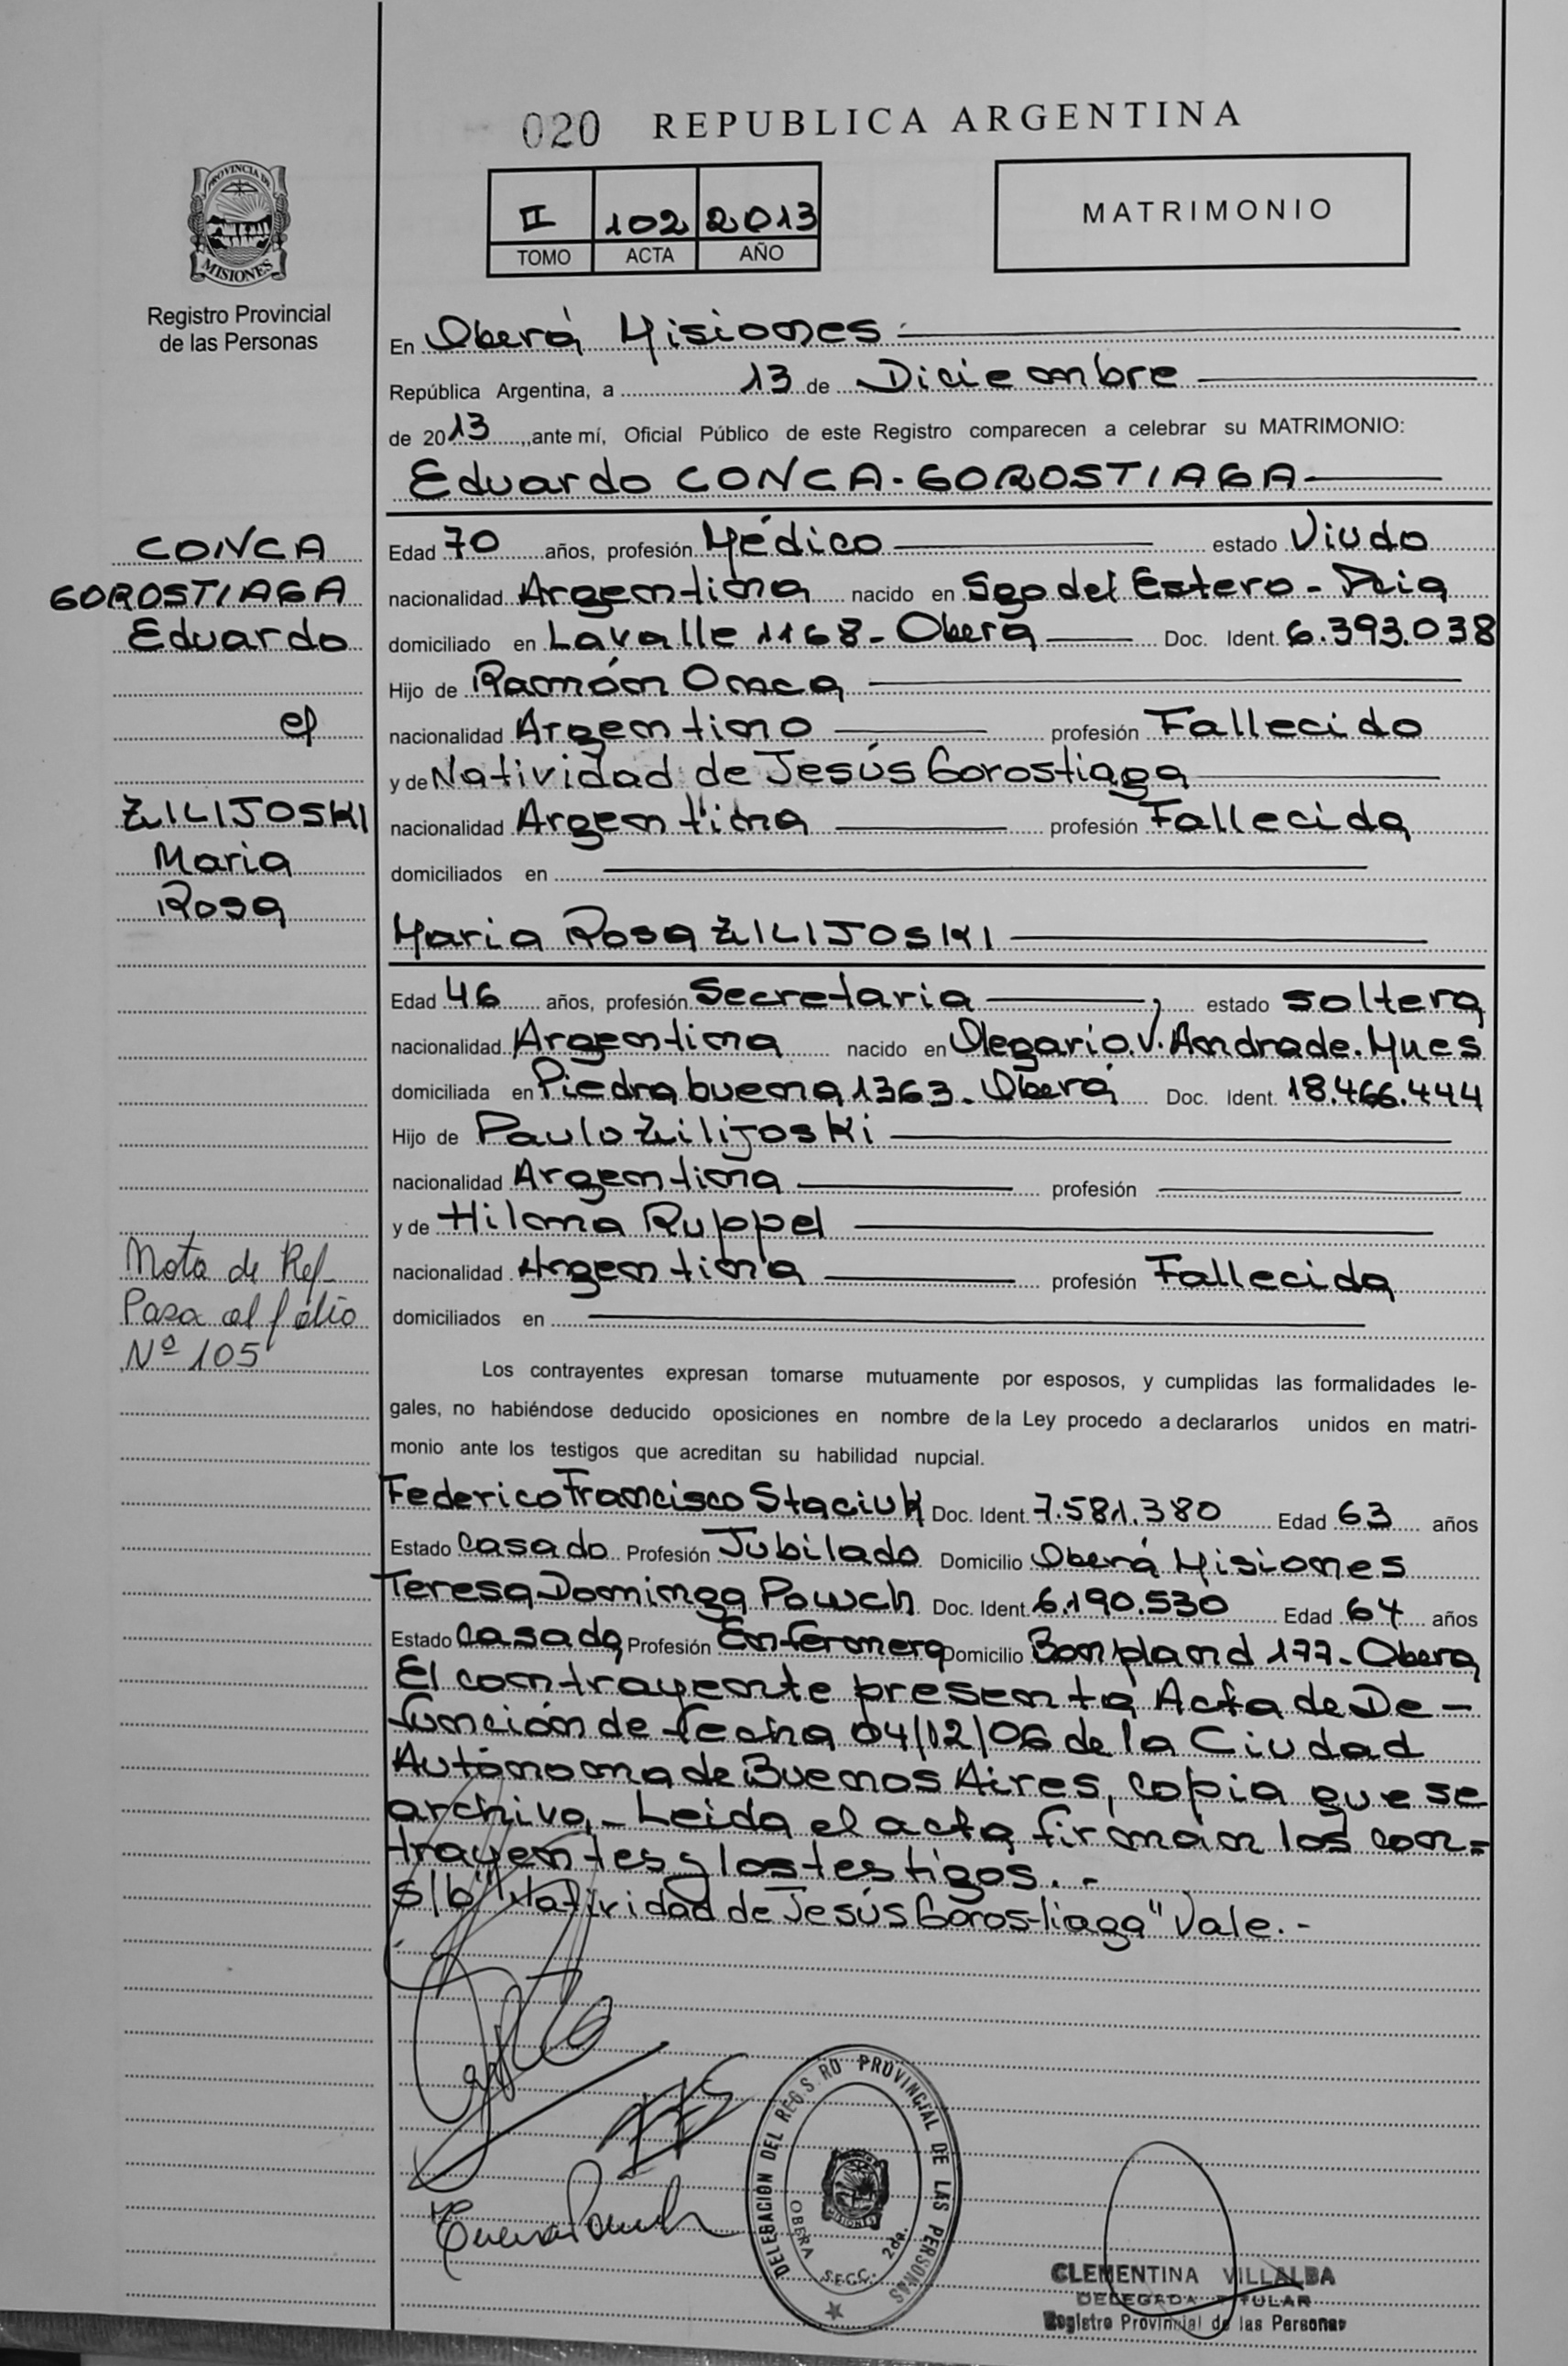 020 REPUBLICA ARGENTINA
PROVINCIA DE
MISIONES
Registro Provincial
de las Personas
II 102 2013
TOMO ACTA AÑO
MATRIMONIO
En Oberá Misiones.-
República Argentina, a 13 de Diciembre
de 2013, ante mí, Oficial Público de este Registro comparecen a celebrar su MATRIMONIO:
Eduardo CONCA-GOROSTIAGA
CONCA
GOROSTIAGA
Eduardo
c/
ŽILIJOSKI
Maria
Rosa
Edad 70 años, profesión Médico estado Viudo
nacionalidad Argentina nacido en Sgo del Estero - Pcia
domiciliado en Lavalle 1168 - Oberá Doc. Ident. 6.393.038
Hijo de Ramón Onca
nacionalidad Argentino profesión Fallecido
y de Natividad de Jesús Gorostiaga
nacionalidad Argentina profesión Fallecida
domiciliados en
Maria Rosa ŽILIJOSKI
Edad 46 años, profesión Secretaria estado soltera
nacionalidad Argentina nacido en Olegario.V.Andrade.Mnes
domiciliada en Piedrabuena 1363 - Oberá Doc. Ident. 18.466.444
Hijo de Paulo Žilijoski
nacionalidad Argentina profesión
y de Hilma Ruppel
nacionalidad Argentina profesión Fallecida
domiciliados en
Nota de Ref-
Pasa al folio
Nº 105
Los contrayentes expresan tomarse mutuamente por esposos, y cumplidas las formalidades le-
gales, no habiéndose deducido oposiciones en nombre de la Ley procedo a declararlos unidos en matri-
monio ante los testigos que acreditan su habilidad nupcial.
Federico Francisco Staciuk Doc. Ident. 7.581.380 Edad 63 años
Estado Casado Profesión Jubilado Domicilio Oberá Misiones
Teresa Dominga Pawch Doc. Ident. 6.190.530 Edad 64 años
Estado Casada Profesión Enfermera Domicilio Bonpland 177 - Oberá
El contrayente presenta Acta de De-
función de fecha 04/12/06 de la Ciudad
Autónoma de Buenos Aires, copia que se
archiva.- Leida el acta firman los con-
trayentes y los testigos. .-
s/b "Natividad de Jesús Gorostiaga" Vale.-
DELEGACION DEL REGISTRO PROVINCIAL DE LAS PERSONAS
OBERA SECC. 2da.
MISIONES
CLEMENTINA VILLALBA
DELEGADA TITULAR
Registro Provincial de las Personas